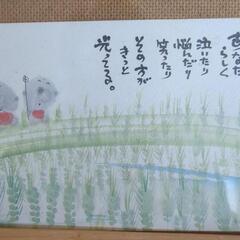 あなた
らしく
泣いたり
悩んだり
笑ったり
その方が
きっと
光ってる。